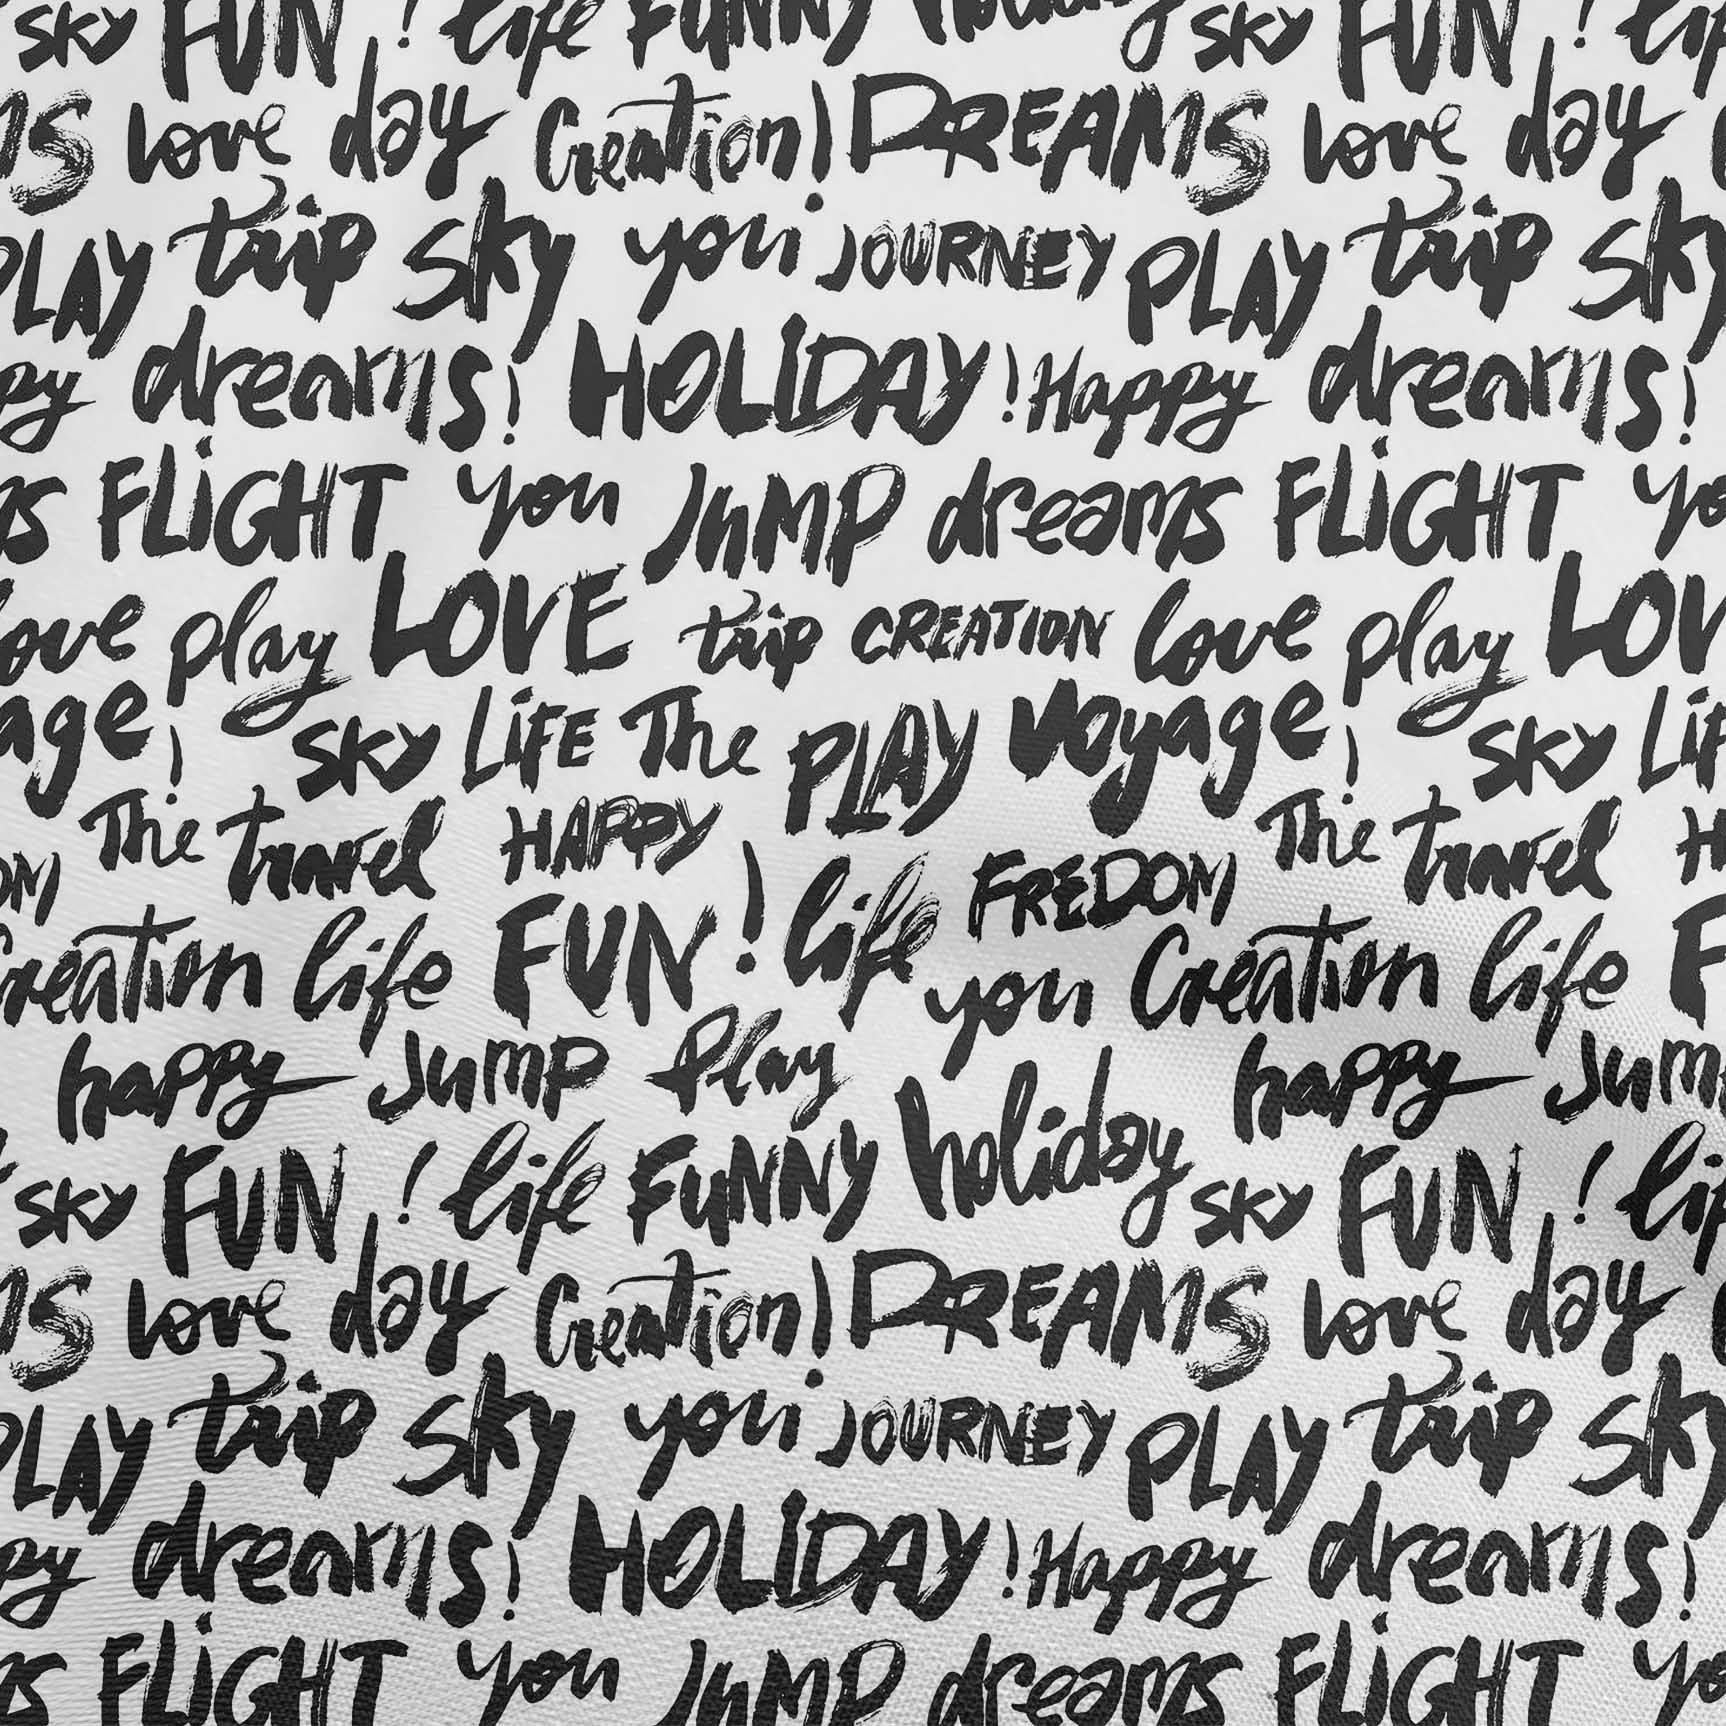 SKY FUN ! life FUNNY holiday SKY FUN ! life
love day Creation! DREAMS love day
PLAY trip Sky you JOURNEY PLAY trip Sky
dreams! HOLIDAY ! Happy dreams!
FLiGHT you JuMP dreams FLiGHT yo
love play LOVE trip CREATION love play LOV
age! SKY LiFE The PLAY Voyage! SKY LiF
The travel HAPPY FREDOM The travel H
Creation life FUN ! life you Creation life F
happy Jump Play happy Jum
SKY FUN ! life FUNNY holiday SKY FUN ! lif
love day Creation! DREAMS love day
PLAY trip Sky you JOURNEY PLAY trip Sky
py dreams! HOLIDAY ! Happy dreams!
FLiGHT you JuMP dreams FLiGHT yo